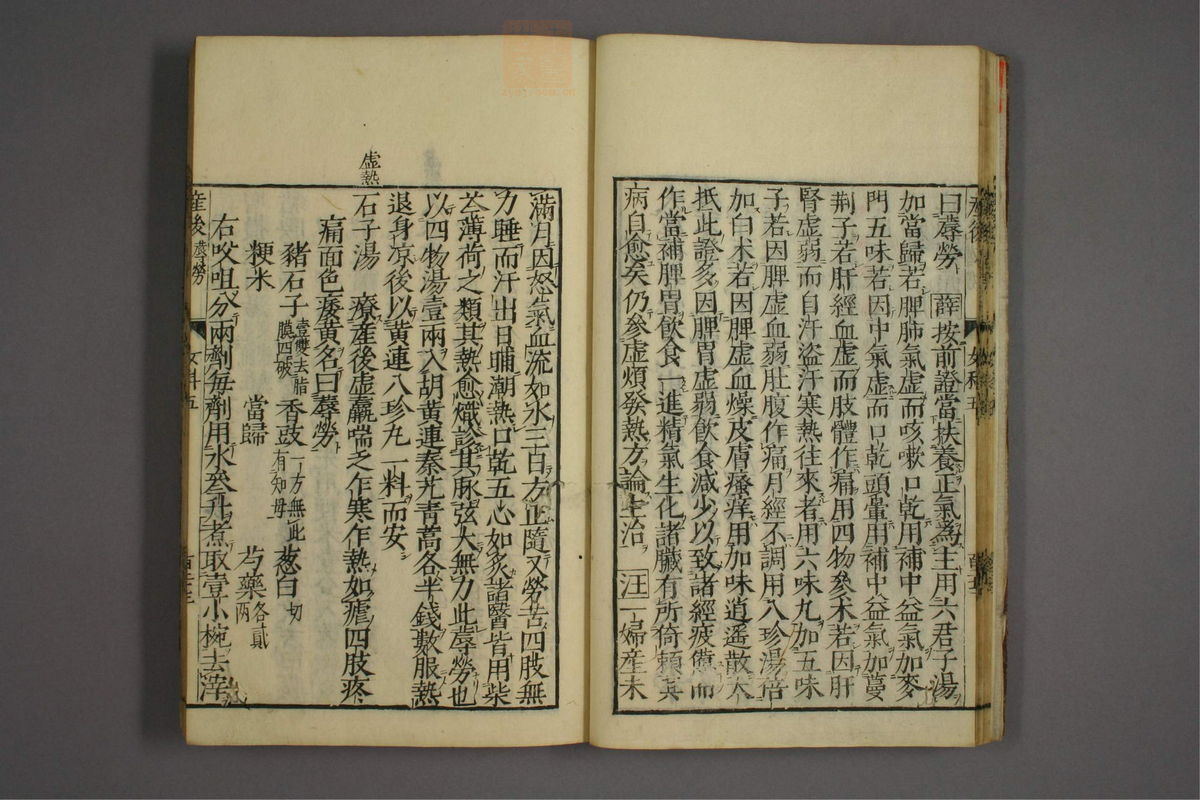 曰蓐勞 薛 按前證當扶養正氣爲主用六君子湯
加當歸若脾肺氣虛而咳嗽口乾用補中益氣加麥
門五味若因中氣虛而口乾頭暈用補中益氣加蔓
荆子若肝經血虛而肢體作痛用四物參朮若因肝
腎虛弱而自汗盜汗寒熱往來者用六味丸加五味
子若因脾虛血弱肚腹作痛月經不調用八珍湯倍
加白朮若因脾虛血燥皮膚瘙痒用加味逍遙散大
抵此證多因脾胃虛弱飲食減少以致諸經疲憊而
作當補脾胃飲食一進精氣生化諸臟有所倚賴其
病自愈矣仍參虛煩發熱方論主治 汪 一婦產未
滿月因怒氣血流如水三日方止隨又勞苦四肢無
力睡而汗出日晡潮熱口乾五心如炙諸醫皆用柴
芩薄荷之類其熱愈熾診其脉弦大無力此蓐勞也
以四物湯壹兩入胡黃連秦艽青蒿各半錢數服熱
退身凉後以黃連八珍丸一料而安
虛熱
石子湯 療產後虛羸喘乏作寒作熱如瘧四肢疼
痛面色痿黃名曰蓐勞
豬石子壹雙去脂臆四破 香豉一方無此有知母 葱白切
粳米 當歸 芍藥各貳兩
右㕮咀分兩劑每劑用水叁升煮取壹小椀去滓
産後 蓐勞 女科五